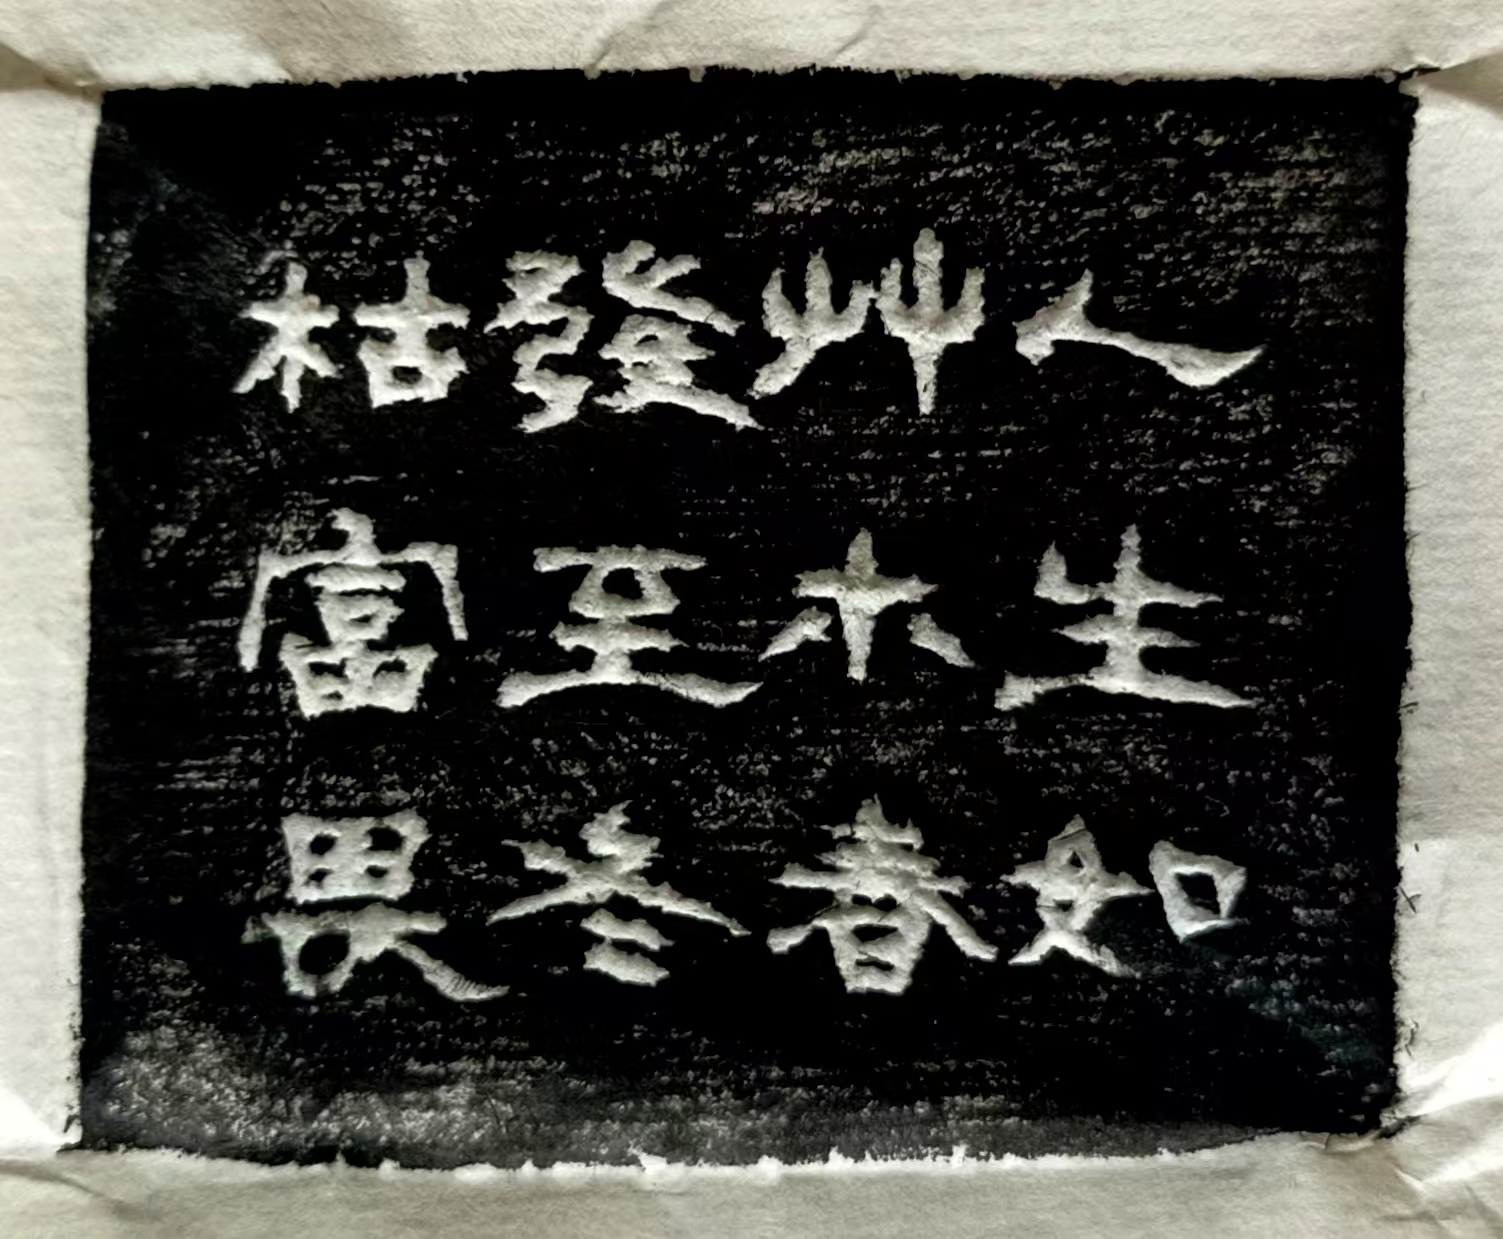 人生如
艸木春
發至冬
枯富畏